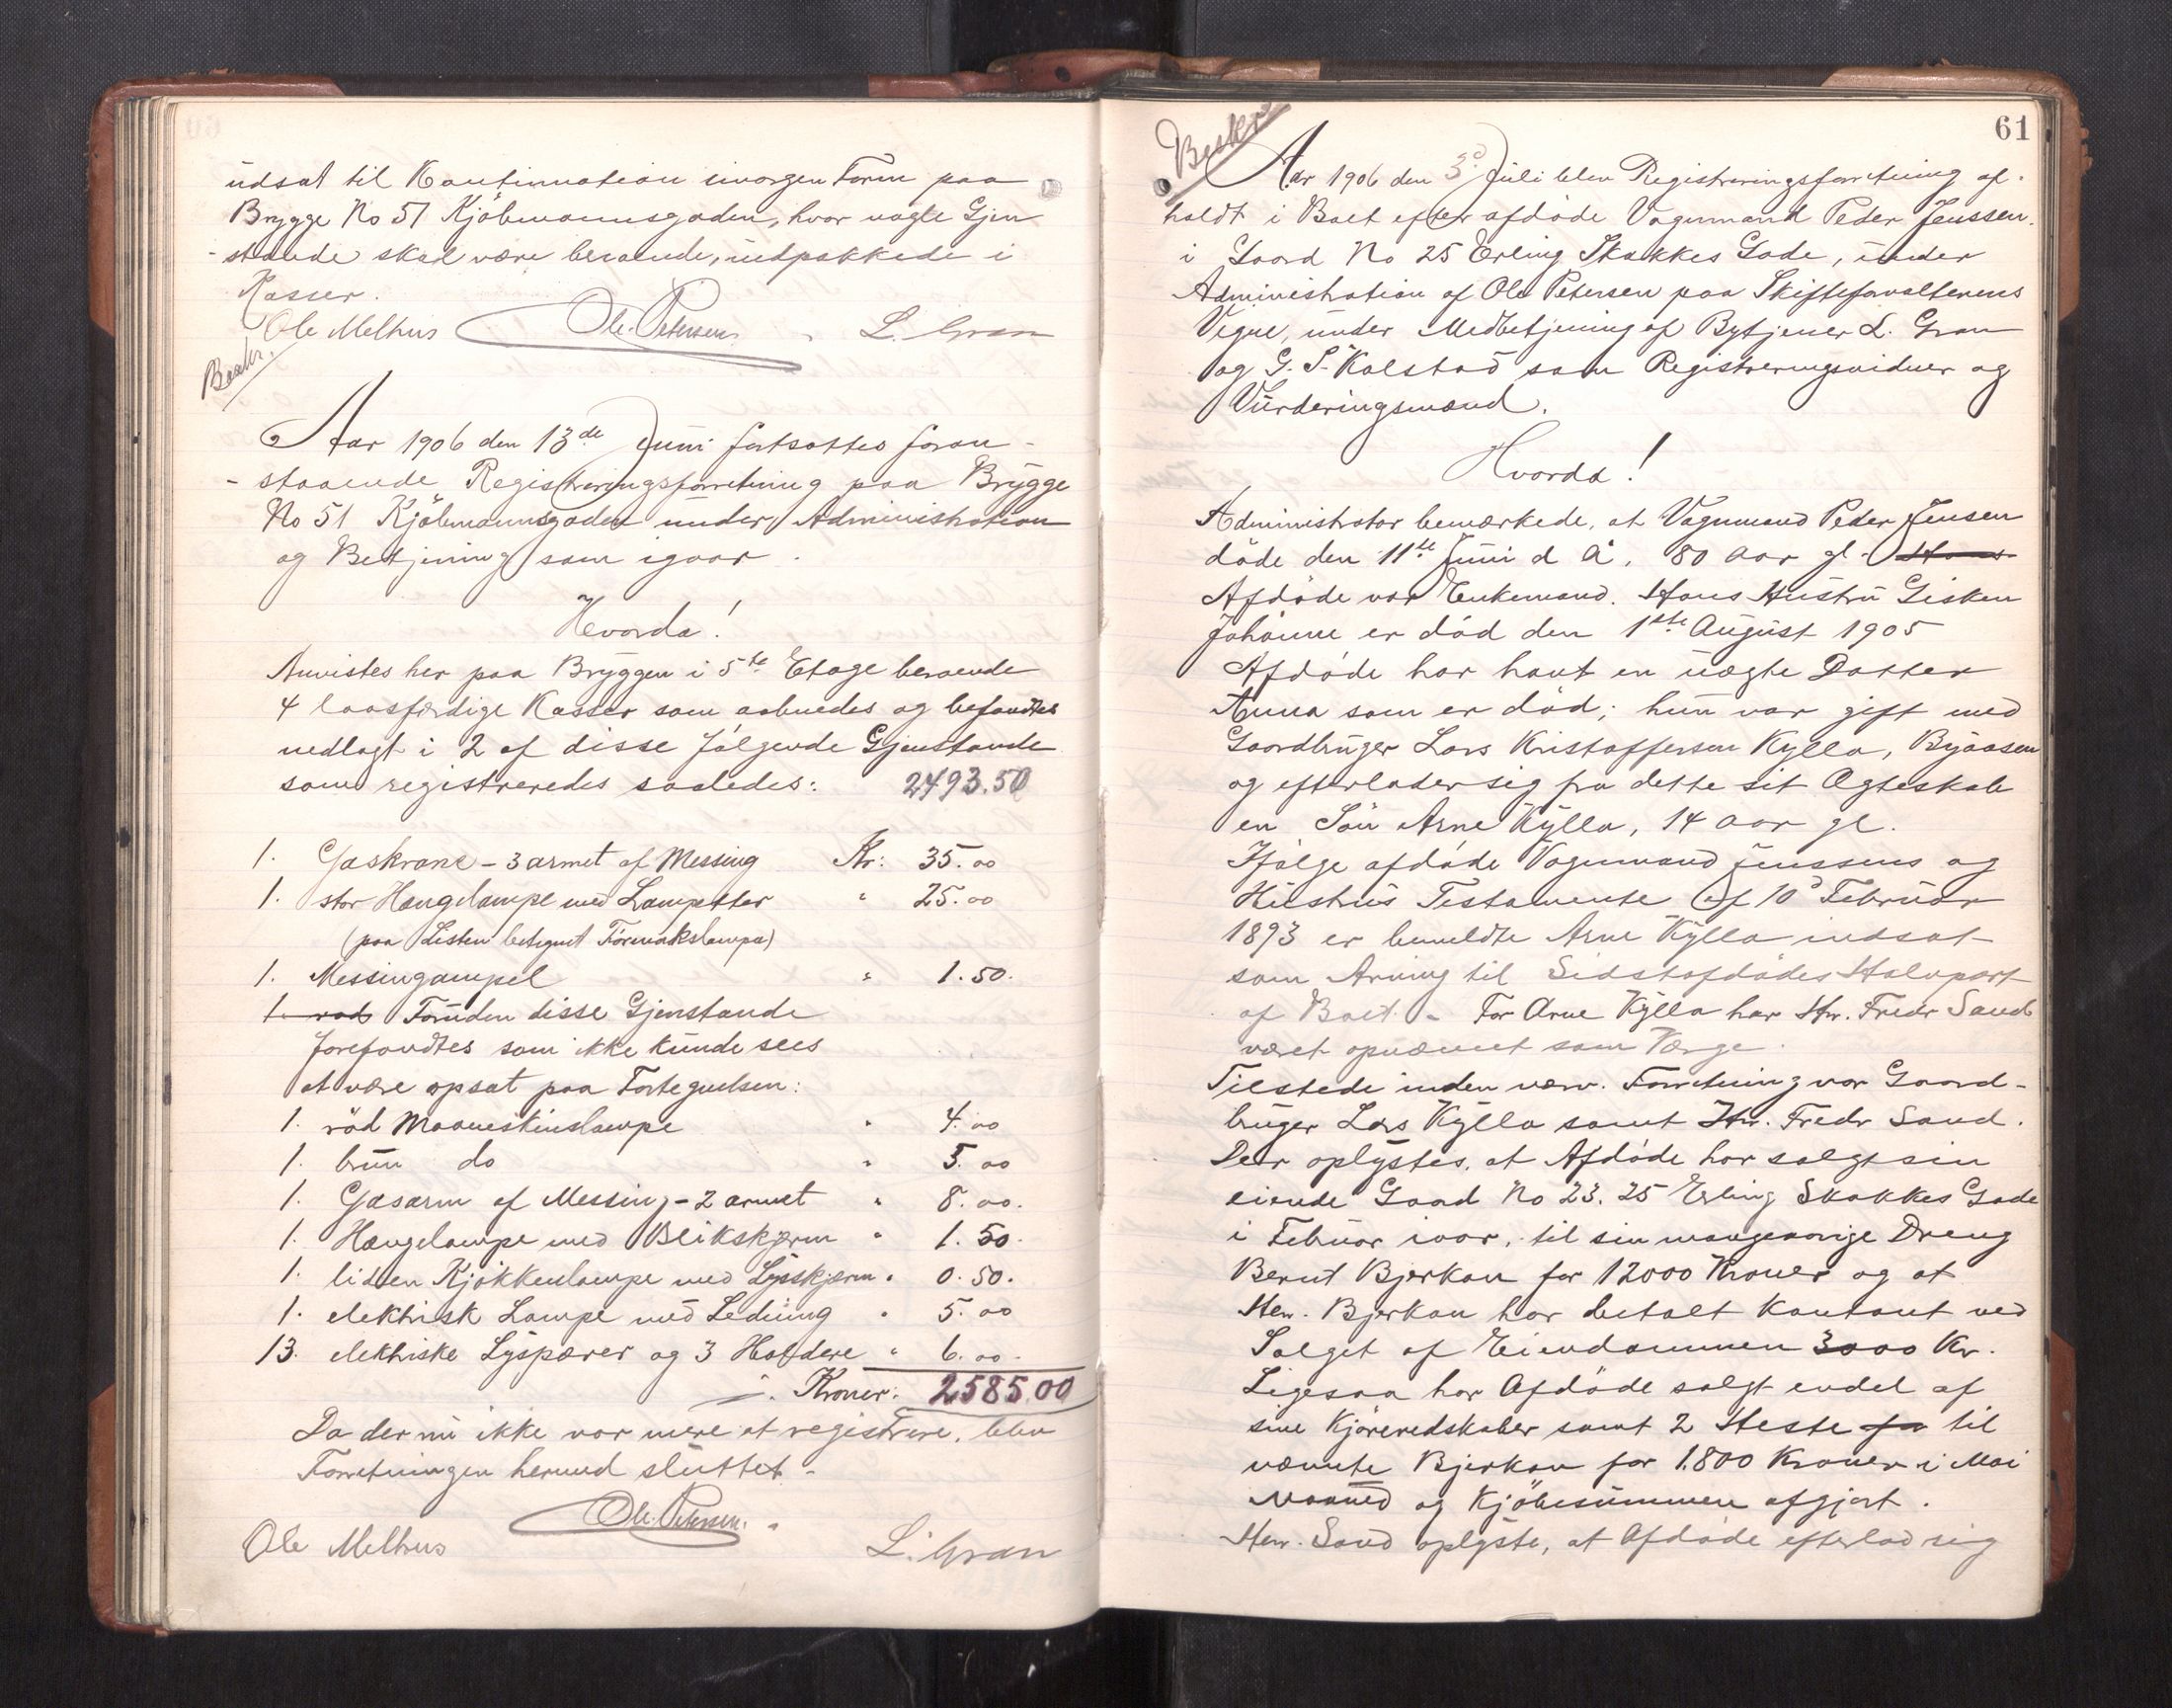 udsat til Kontinuation imorgen Form. paa
Brygge No 51 Kjøbmannsgaden, hvor nogle Gjen
-stande skal være beroende, indpakkede i
Kasser.
Ole Melhus Ole Petersen L. Gran
Beskr.
Aar 1906 den 13de Juni fortsattes foran-
-staaende Registreringsforretning paa Brygge
No 51 Kjøbmannsgaden under Administration
og Betjening som igaar.
Hvorda!
Anvistes her paa Bryggen i 5te Etage beroende
4 laasfærdige Kasser som aabnedes og befandtes
nedlagt i 2 af disse følgende Gjenstande
som registreredes saaledes: 2493.50
1. Gaskrone - 3 armet af Messing Kr: 35.00
1. stor Hængelampe med Lampetter " 25.00
(paa Listen betegnet Formakslampe)
1. Messingampel " 1.50.
1 rød Foruden disse Gjenstande
forefandtes som ikke kunde sees
at være opsat paa Fortegnelsen:
1. rød Maaneskinslampe " 4.00
1. brun do " 5.00
1. Gasarm af Messing - 2 armet " 8.00.
1. Hængelampe med Blikskjærm " 1.50.
1. liden Kjøkkenlampe med Lysskjærm " 0.50.
1. elektrisk Lampe med Ledning " 5.00
13. elektriske Lyspærer og 3 Holdere " 6.00.
Kroner: 2585.00
Da der nu ikke var mere at registrere, blev
Forretningen hermed sluttet.
Ole Petersen.
Ole Melhus L. Gran
61
Beskr
Aar 1906 den 3d Juli blev Registreringsforretning af-
holdt i Boet efter afdøde Vognmand Peder Jenssen.
i Gaard No 25 Erling Skakkes Gade, under
Administration af Ole Petersen paa Skifteforvalterens
Vegne, under Medbetjening af Bytjener L. Gran
og G. S. Kalstad som Registreringsvidner og
Vurderingsmænd.
Hvorda!
Administrator bemærkede, at Vognmand Peder Jensen
døde den 11te Juni d. A., 80 Aar gl. Hans
Afdøde var Enkemand. Hans Hustru Gisken
Johanne er død den 1ste August 1905
Afdøde har havt en uægte Datter
Anna som er død; hun var gift med
Gaardbruger Lars Kristoffersen Kylla, Byaasen
og efterlader sig fra dette sit Ægteskab
en Søn Arne Kylla, 14 Aar gl.
Ifølge afdøde Vognmand Jenssens og
Hustrus Testamente af 10d Februar
1893 er bemeldte Arne Kylla indsat
som Arving til Sidstafdødes Halvpart
af Boet. - For Arne Kylla har Hr. Fredr Sand
været opnævnt som Værge.
Tilstede under nærv. Forretning var Gaard-
bruger Lars Kylla samt Hr. Fredr Sand.
Der oplystes, at Afdøde har solgt sin
eiende Gaard No 23. 25 Erling Skakkes Gade
i Februar ivaar, til sin mangeaarige Dreng
Bernt Bjerkan for 12000 Kroner og at
Herr. Bjerkan har betalt kontant ved
Salget af Eiendommen 3000 Kr.
Ligesaa har Afdøde solgt endel af
sine Kjøreredskaber samt 2 Heste for til
nævnte Bjerkan for 1.800 Kroner i Mai
Maaned og Kjøbesummen afgjort.
Herr. Sand oplyste, at Afdøde efterlod sig